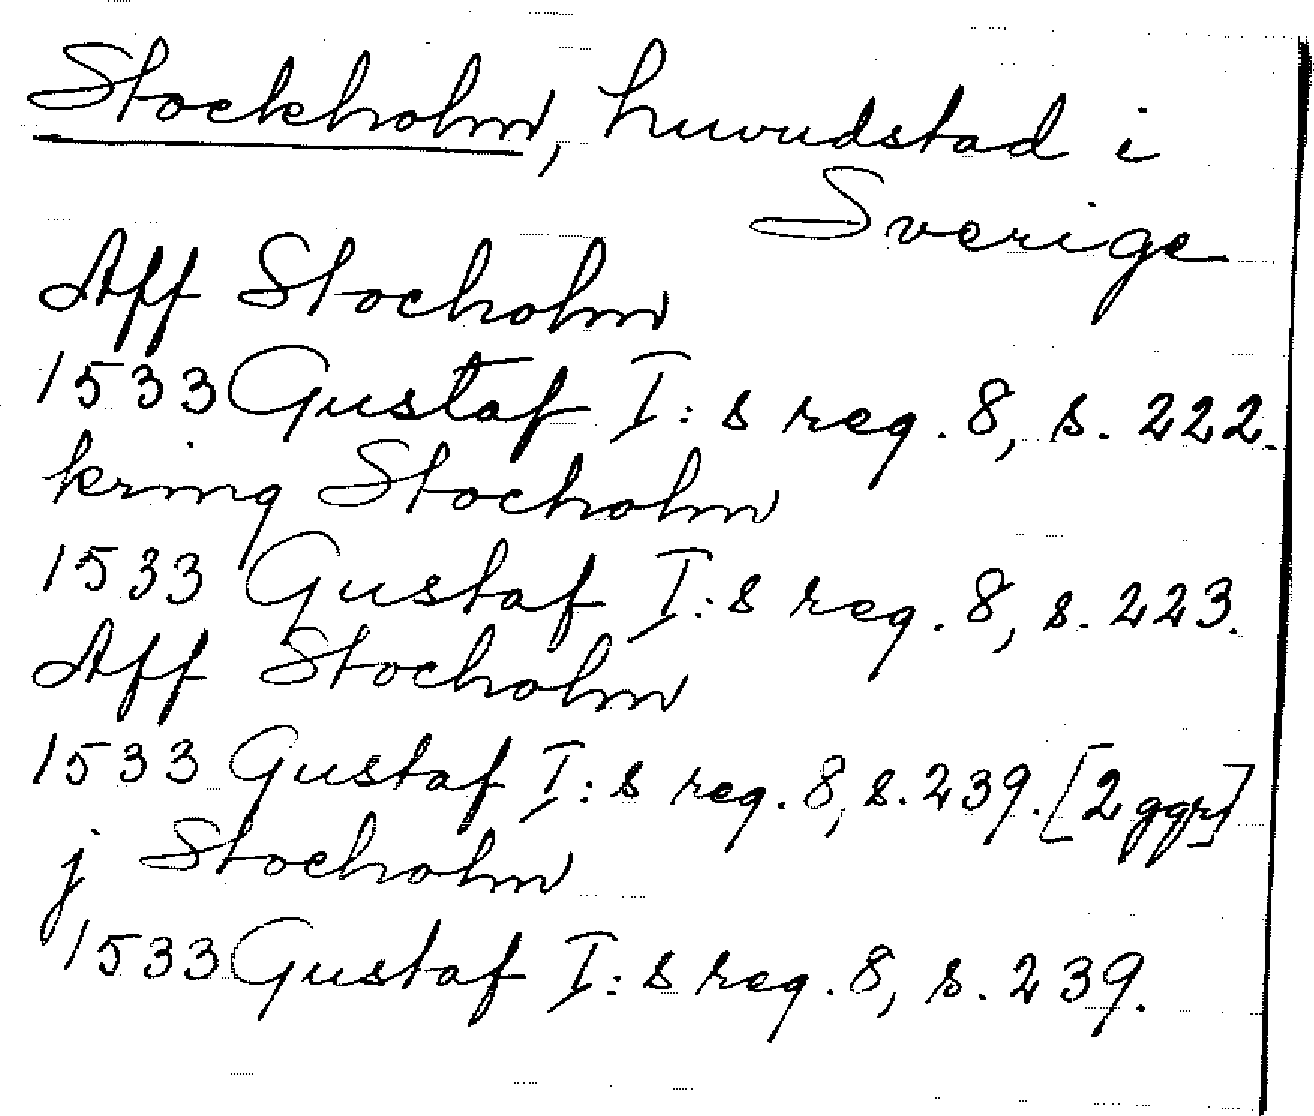 Stockholm, huvudstad i
Sverige
Aff Stocholm
1533 Gustaf I:s reg. 8, s. 222.
kring Stocholm
1533 Gustaf I:s reg. 8, s. 223.
Aff Stocholm
1533 Gustaf I:s reg. 8, s. 239. [2 ggr]
j Stocholm
1533 Gustaf I:s reg. 8, s. 239.